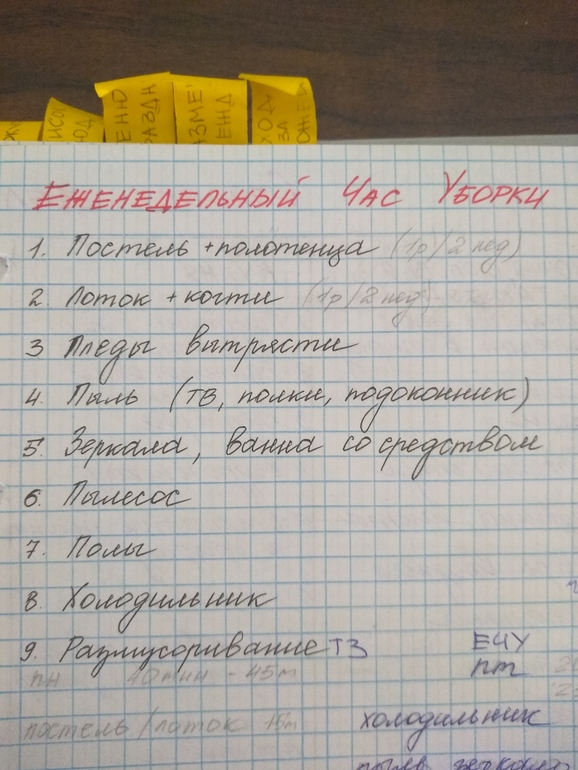 ЕНЮ
АЗДН
АЗМЕ
ЕЖД
ХОД
ЗА
ЕЖЕНЕДЕЛЬНЫЙ ЧАС УБОРКИ
1. Постель + полотенца (1р/2 нед)
2. Лоток + когти (1р/2 нед)
3 Пледы вытрясти
4. Пыль (ТВ, полки, подоконник)
5. Зеркала, ванна со средством
6. Пылесос
7. Полы
8. Холодильник
9. Размусоривание ТЗ ЕЧУ
пн 40мин - 45м пт
постель/лоток 15м холодильник
пыль зеркала